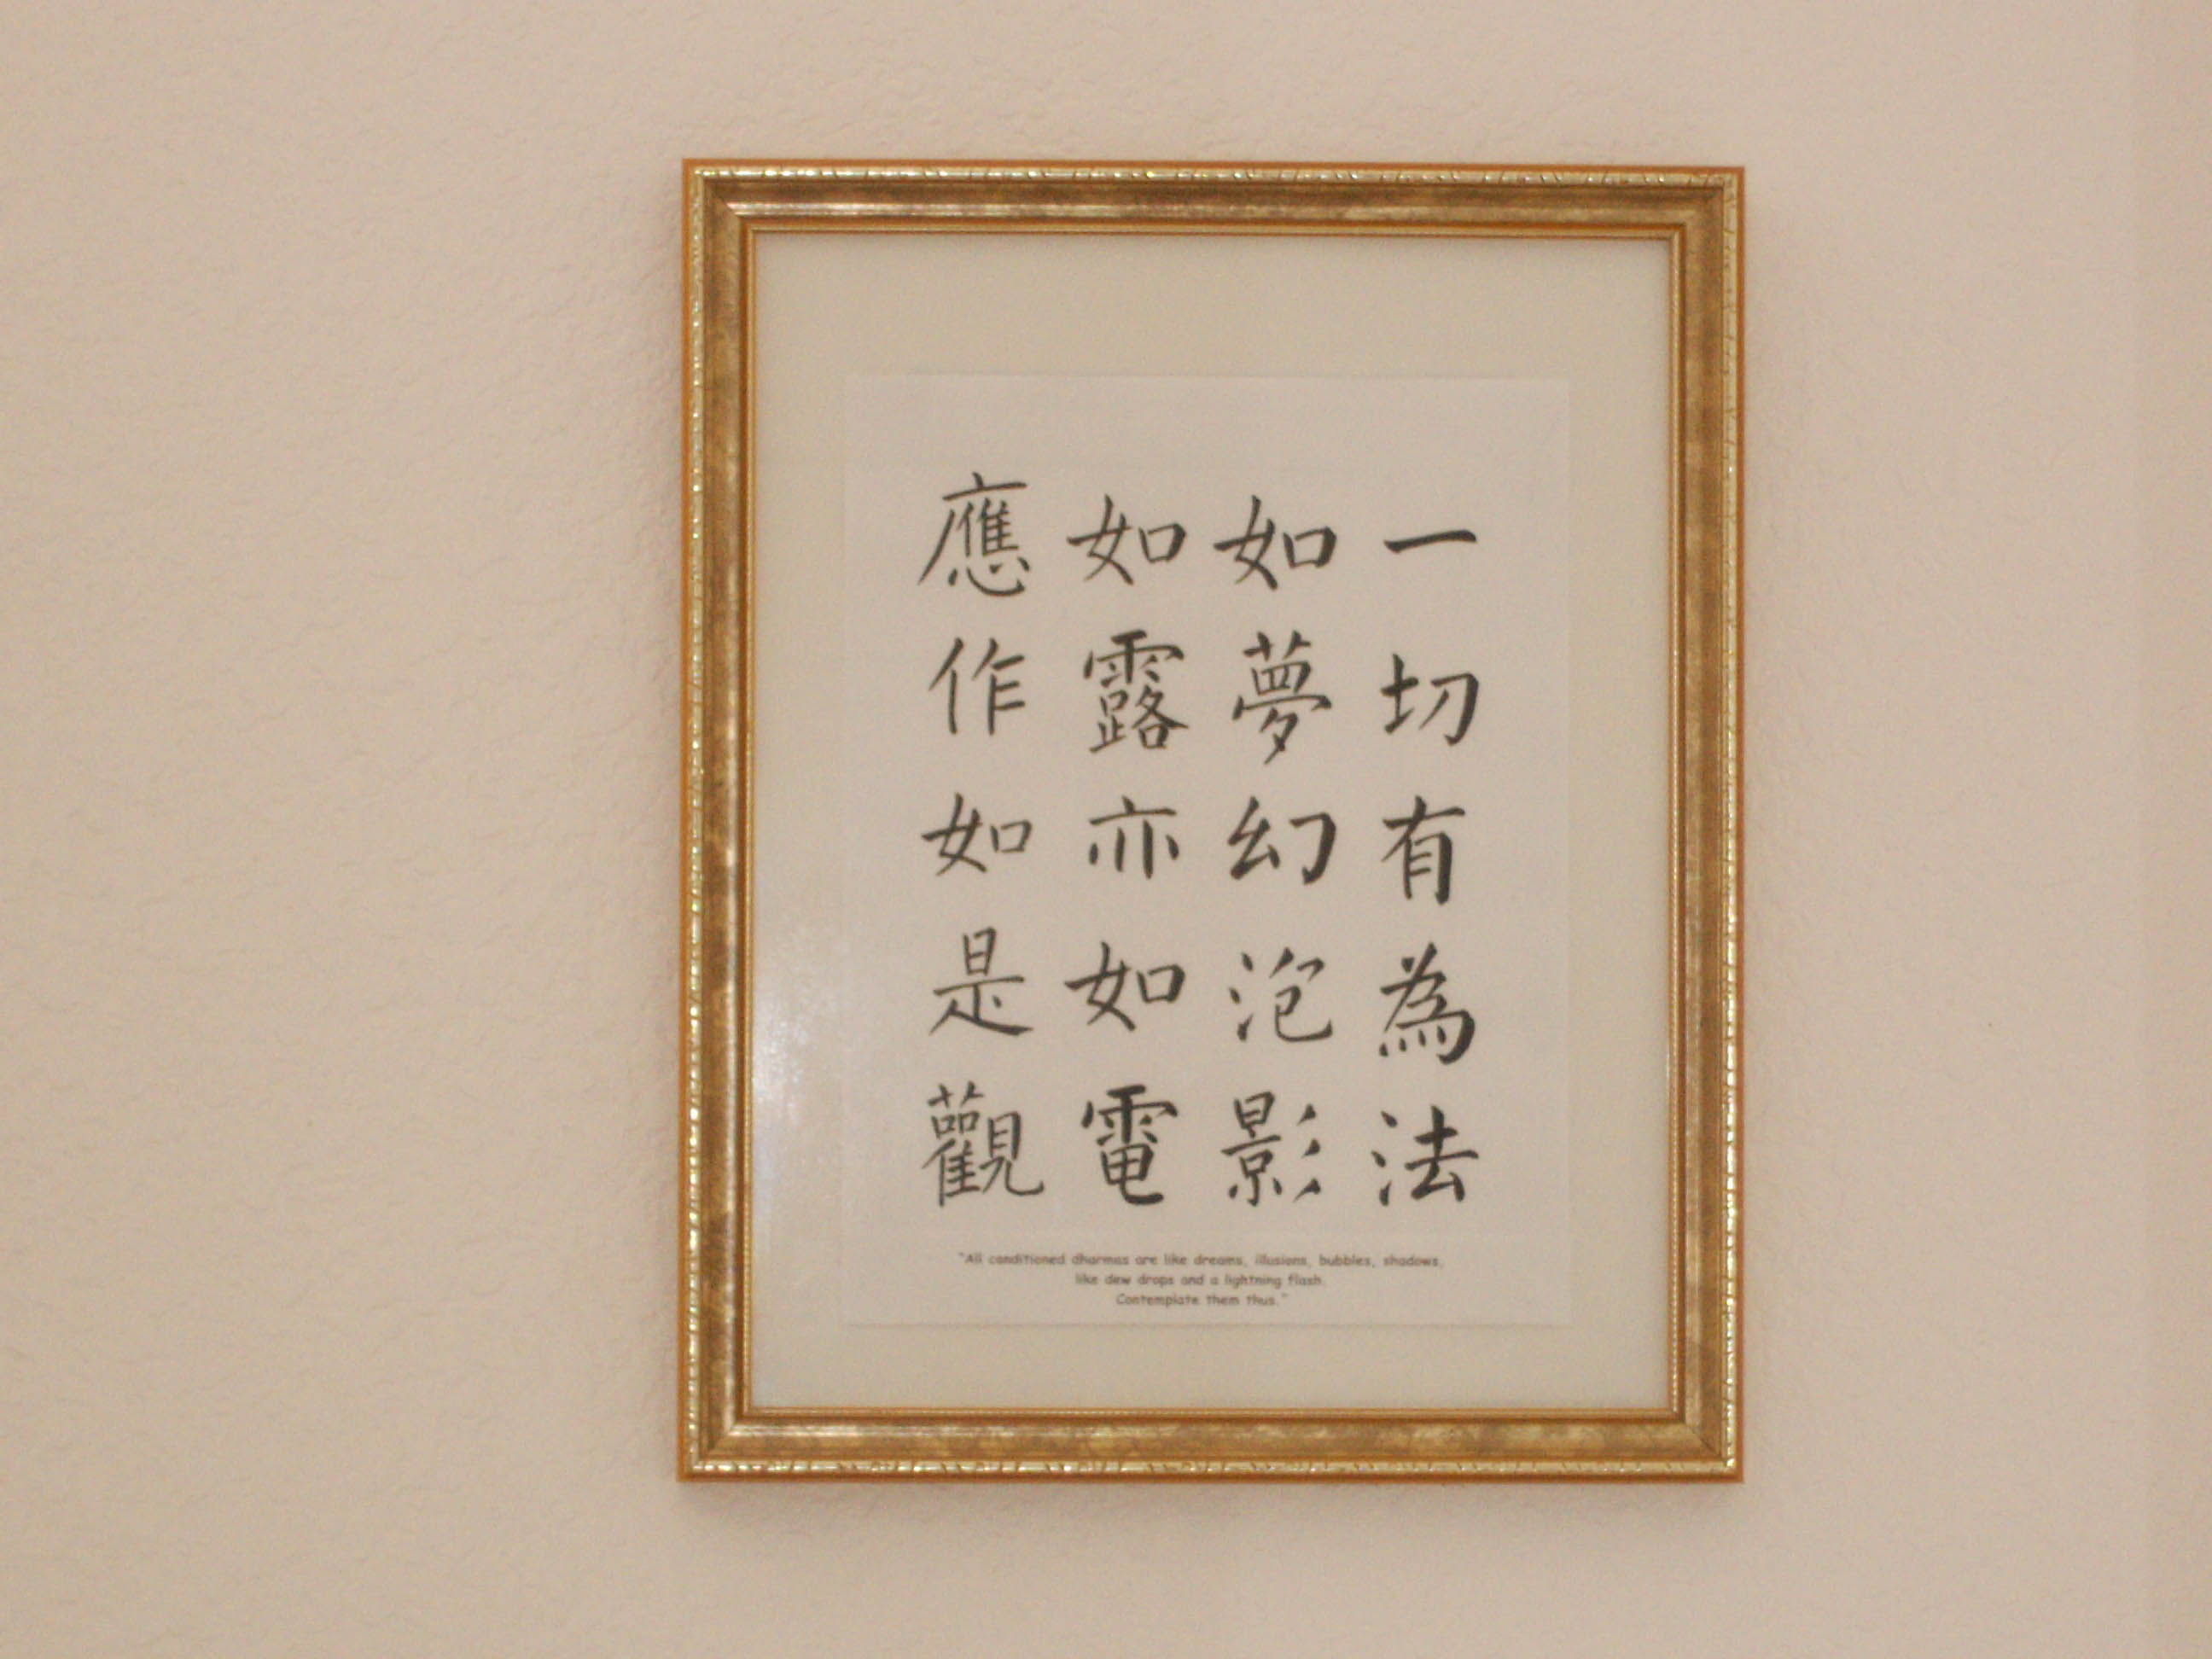 一切有為法
如夢幻泡影
如露亦如電
應作如是觀
"All conditioned dharmas are like dreams, illusions, bubbles, shadows,
like dew drops and a lightning flash.
Contemplate them thus."